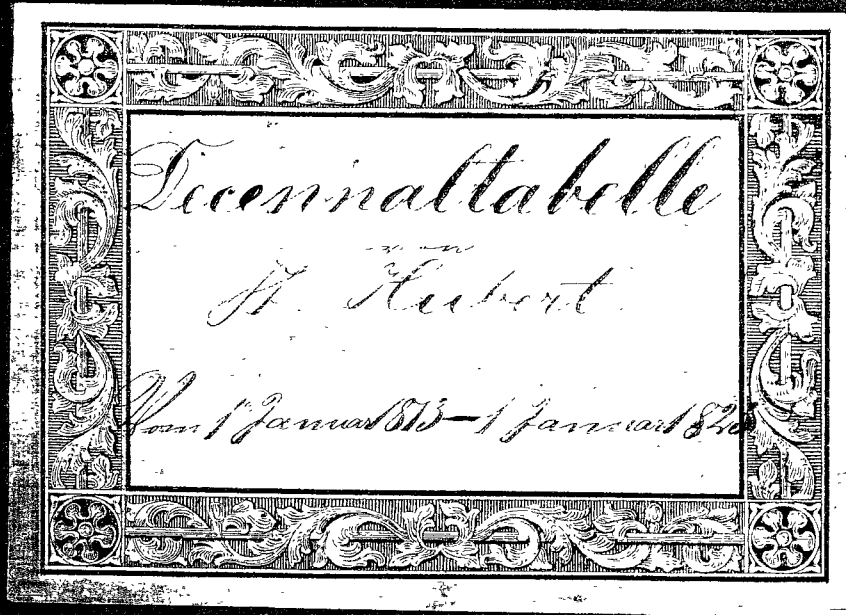 Decennaltabelle
von
St. Hubert
Vom 1 Januar 1813 — 1 Januar 1823